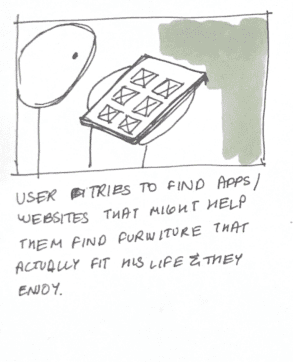 USER TRIES TO FIND APPS/
WEBSITES THAT MIGHT HELP
THEM FIND FURNITURE THAT
ACTUALLY FIT HIS LIFE & THEY
ENJOY.